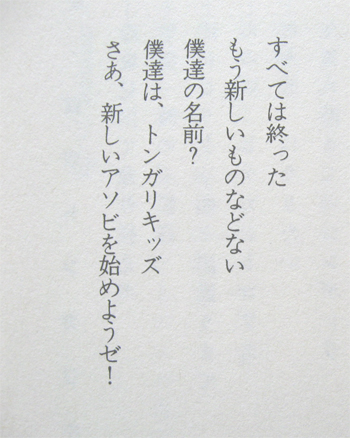 すべては終った
もう新しいものなどない
僕達の名前？
僕達は、トンガリキッズ
さあ、新しいアソビを始めようゼ！